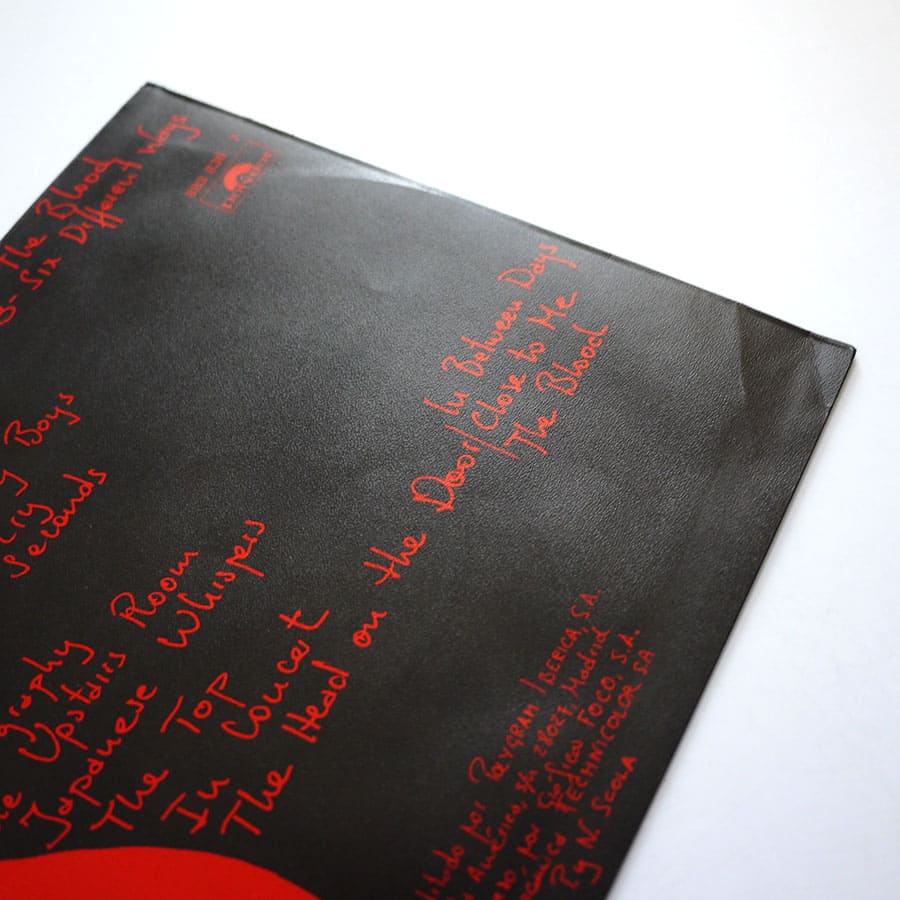 The Blood
3- Six Different Ways
883 838
Cry Boys
Seconds
graphy
Upstairs Room
Japanese Whispers
The Top
In Concert
The Head on the Door/
In Between Days
/Close to Me
The Blood
por Polygram Iberica, S.A.
América, 28027, Madrid
por FOCO, S.A.
TECHNICOLOR SA
By N. Scola